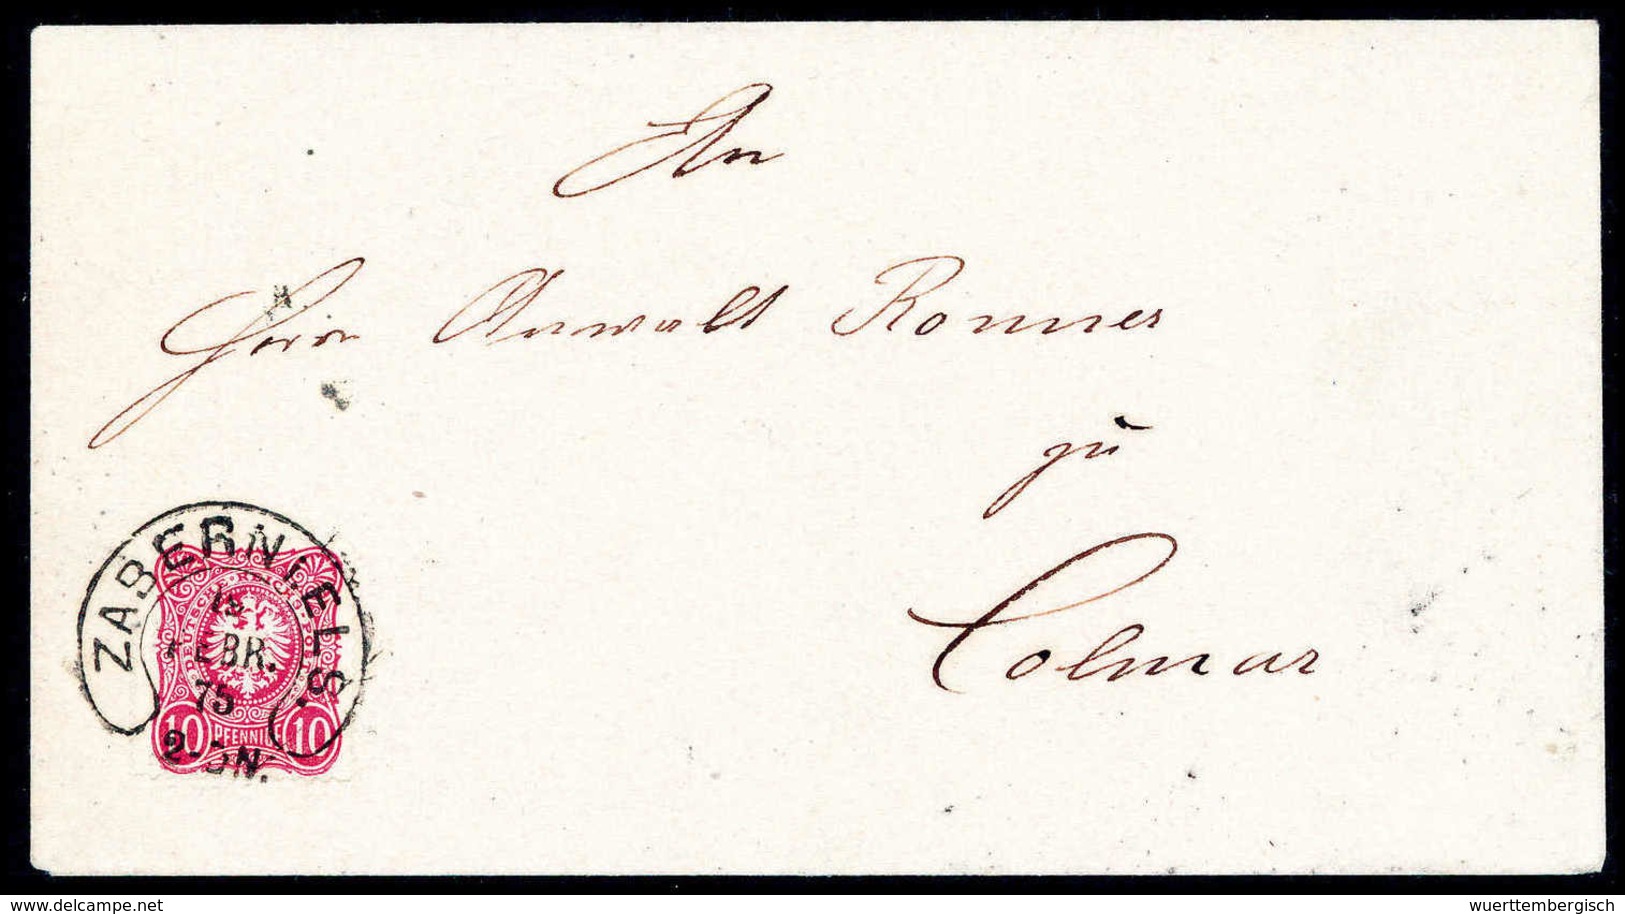 An
Herr Anwalt Ronner
zu
Colmar
ZABERN i. ELS.
FEBR.
75
2-3N.
DEUTSCHE REICHS-POST
10 PFENNIGE 10
www.delcampe.net
wuerttembergisch